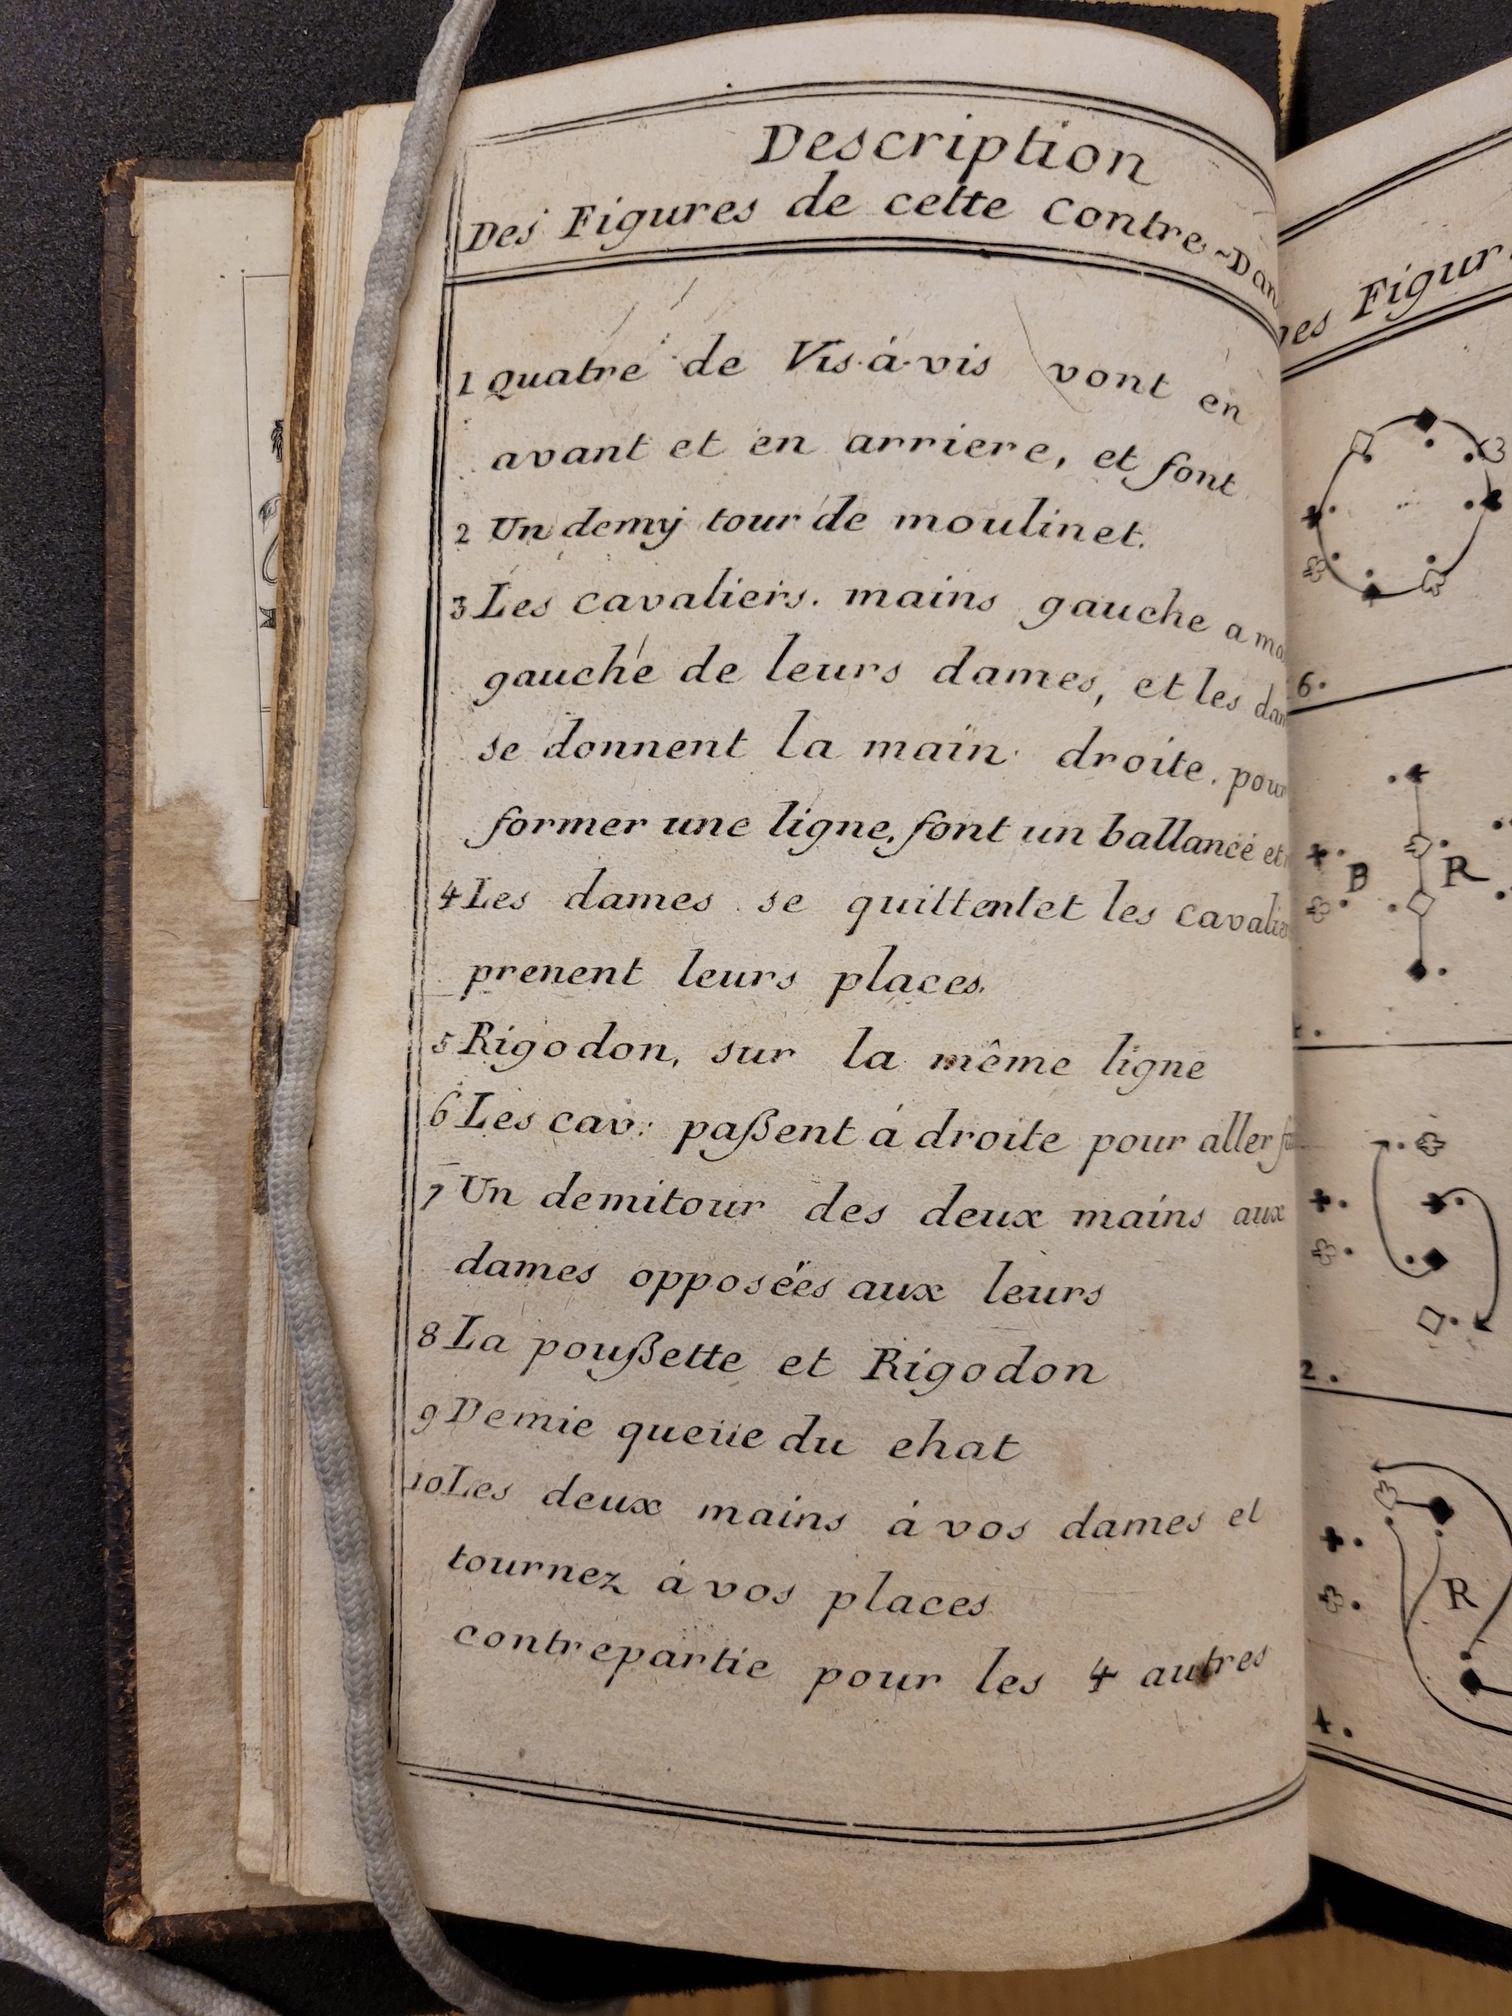 Description
Des Figures de cette Contre-Dan
1 Quatre de Vis-à-vis vont en
avant et en arriere, et font
2 Un demy tour de moulinet.
3 Les cavaliers. mains gauche a
gauche de leurs dames, et les
se donnent la main droite. pour
former une ligne, font un ballancé et
4 Les dames se quittent et les cavalie
prenent leurs places.
5 Rigodon, sur la même ligne
6 Les cav: paßent á droite pour aller
7 Un demitour des deux mains aux
dames opposées aux leurs
8 La poußette et Rigodon
9 Demie queüe du chat
10 Les deux mains á vos dames et
tournez á vos places
contrepartie pour les 4 autres
es Figur
6.
B R
2.
R
4.